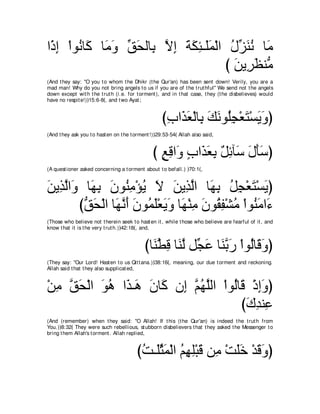 مَا نُنَزِّلُ الْمَلَـئِكَةَ إِلاَّ بِالحَقِّ وَمَا كَانُواْ إِذًا
مُّنظَرِينَ )
(And they say: "O you to whom the Dhikr (the Qur'an) has been sent down! Verily, you are a
mad man! Why do you not bring angels to us if you are of the truthful'' We send not the angels
down except with the truth (i.e. for torment), and in that case, they (the disbelieves) would
have no respite!)(15:6-8), and two Ayat;
(وَيَسْتَعْجِلُونَكَ بِالْعَذَابِ)
(And they ask you to hasten on the torment!)(29:53-54( Allah also said,
(سَأَلَ سَآئِلٌ بِعَذَابٍ وَاقِعٍ )
(A questioner asked concerning a torment about to befall.) (70:1(,
(يَسْتَعْجِلُ بِهَا الَّذِينَ لاَ يُؤْمِنُونَ بِهَا وَالَّذِينَ
ءَامَنُواْ مُشْفِقُونَ مِنْهَا وَيَعْلَمُونَ أَنَّهَا الْحَقُّ)
(Those who believe not therein seek to hasten it, while those who believe are fearful of it, and
know that it is the very truth.)(42:18(, and,
(وَقَالُواْ رَبَّنَا عَجِّل لَّنَا قِطَّنَا)
(They say: "Our Lord! Hasten to us Qittana.)(38:16), meaning, our due torment and reckoning.
Allah said that they also supplicated,
(وَإِذْ قَالُواْ اللَّهُمَّ إِن كَانَ هَـذَا هُوَ الْحَقَّ مِنْ
عِندِكَ)
(And (remember) when they said: "O Allah! If this (the Qur'an) is indeed the truth from
You.)(8:32( They were such rebellious, stubborn disbelievers that they asked the Messenger to
bring them Allah's torment. Allah replied,
(وَقَدْ خَلَتْ مِن قَبْلِهِمُ الْمَثُلَـتُ)